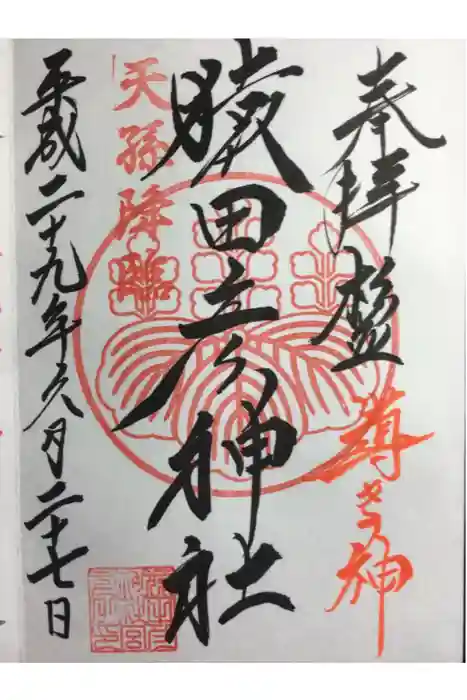 奉拝
導きの神
猿田彦神社
天孫降臨
平成二十九年六月二十七日